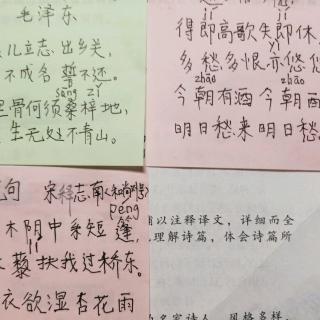 毛泽东
儿立志出乡关,
不成名誓不还。
sāng zǐ
骨何须桑梓地,
生无处不青山。
jí
得即高歌失即休,
yì
多愁多恨亦悠悠
zhāo zhāo
今朝有酒今朝
明日愁来明日愁。
句 宋·释志南
péng
木阴中系短篷,
lí
藜扶我过桥东。
衣欲湿杏花雨
以注释译文,详细而全
理解诗篇,体会诗篇所
名家诗人 风格多样,